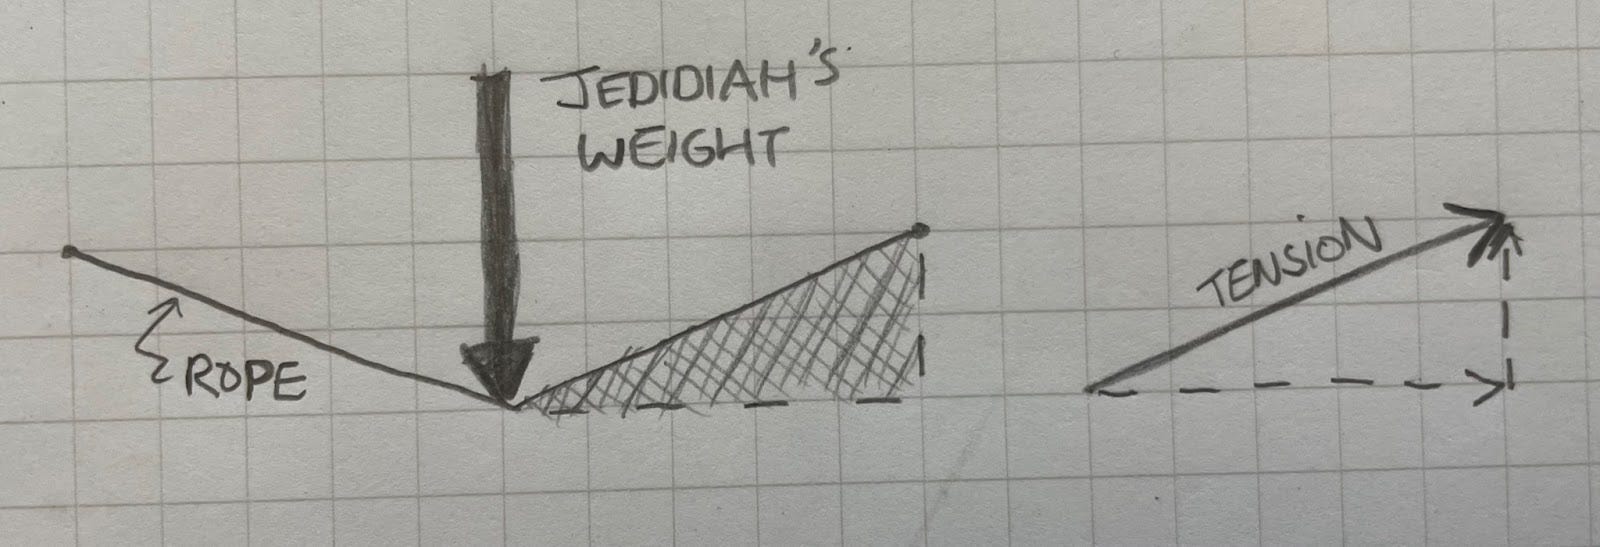 JEDIDIAH'S
WEIGHT
ROPE
TENSION